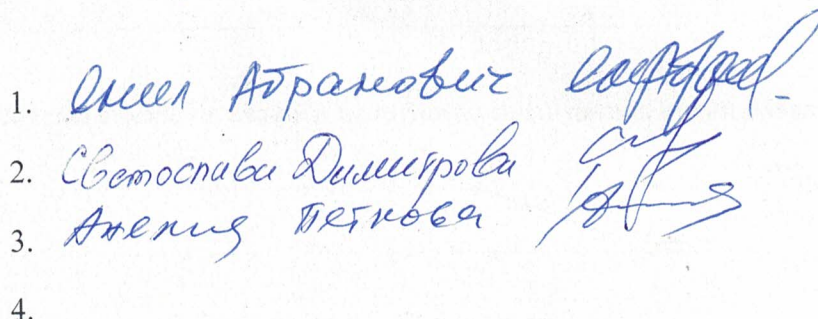 1. Емил Абрамович
2. Светослава Димитрова
3. Анелия Петкова
4.